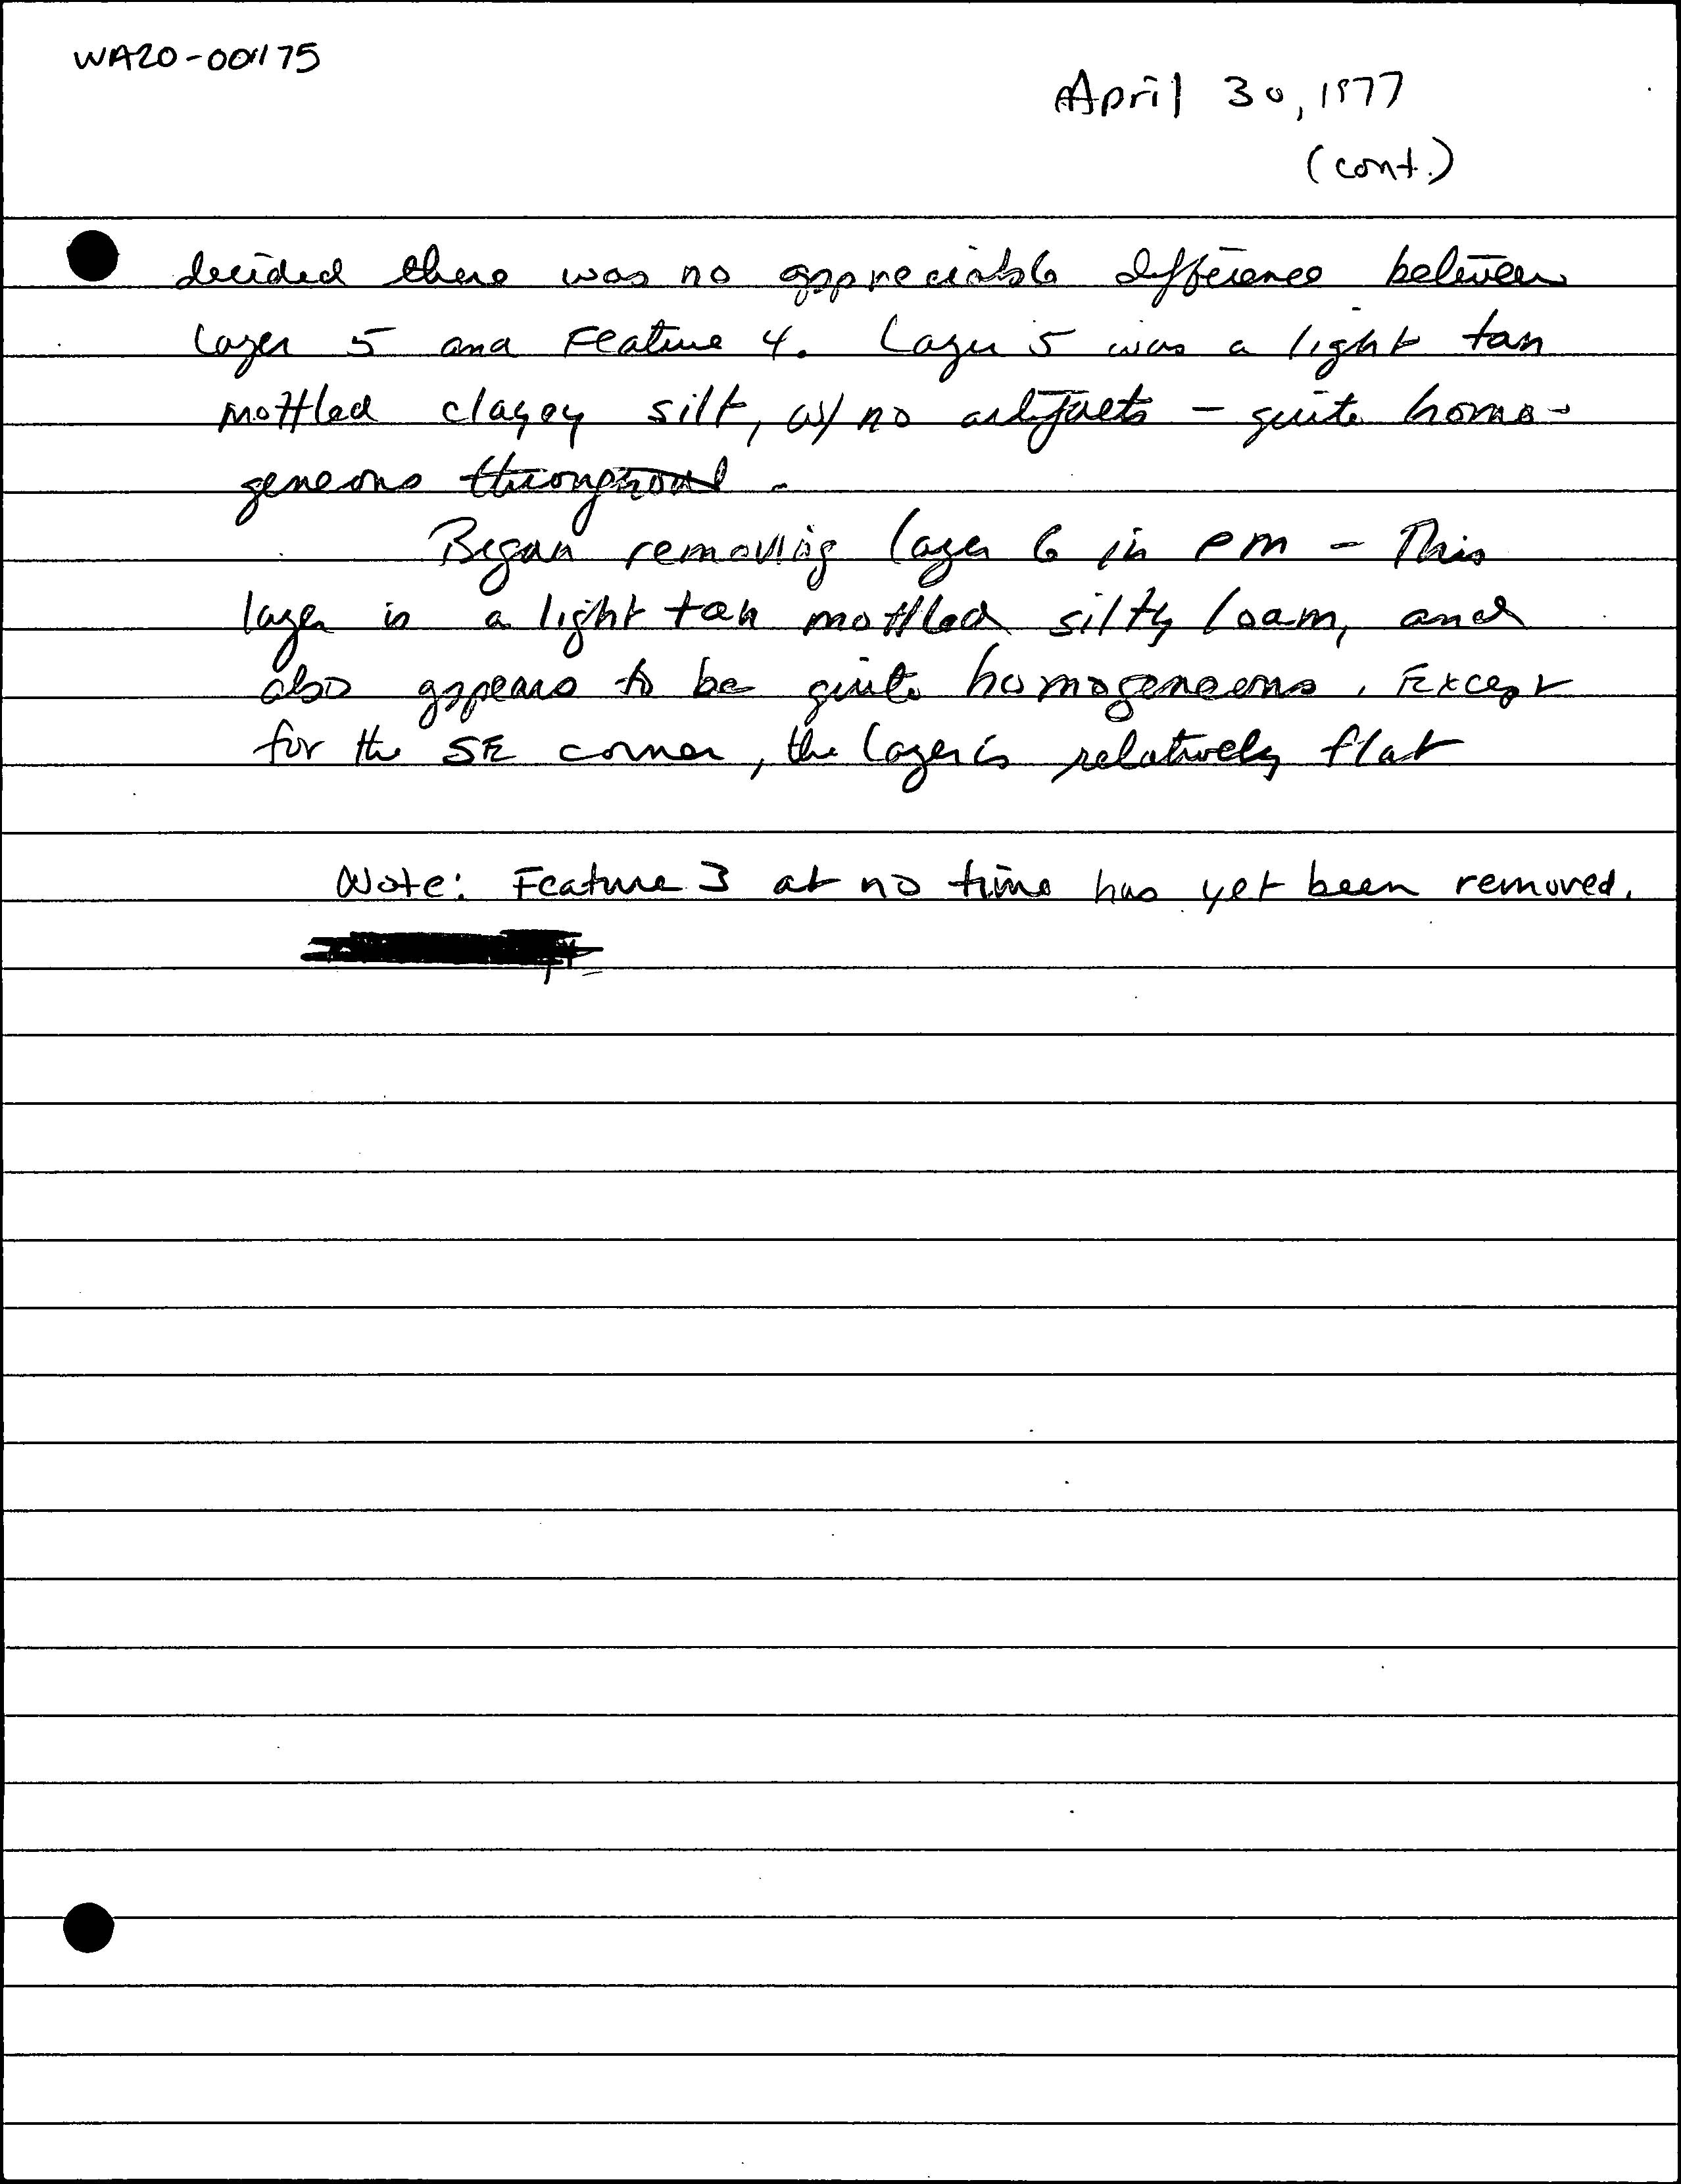 WA20-00175
April 30, 1977
(cont.)
decided there was no appreciable difference between
layer 5 and Feature 4. Layer 5 was a light tan
mottled clayey silt, w/ no artifacts - quite homo-
geneous throughout.
Began removing layer 6 in PM - This
layer is a light tan mottled silty loam, and
also appears to be quite homogeneous. Except
for the SE corner, the layer is relatively flat
Note: Feature 3 at no time has yet been removed.